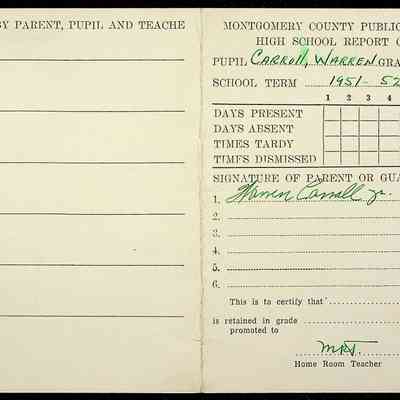 BY PARENT, PUPIL AND TEACHE
MONTGOMERY COUNTY PUBLIC
HIGH SCHOOL REPORT C
PUPIL Carroll, Warren GRA
SCHOOL TERM 1951-52
1 2 3 4
DAYS PRESENT
DAYS ABSENT
TIMES TARDY
TIMES DISMISSED
SIGNATURE OF PARENT OR GUA
1. Warren Carroll Jr.
2.
3.
4.
5.
6.
This is to certify that
is retained in grade
promoted to
MRT.
Home Room Teacher